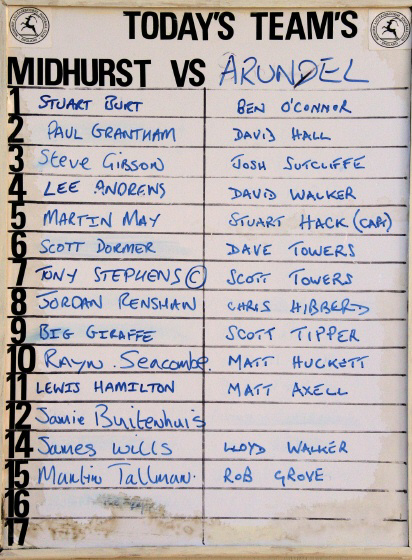 TODAY'S TEAM'S
MIDHURST VS ARUNDEL
1 STUART BURT BEN O'CONNOR
2 PAUL GRANTHAM DAVID HALL
3 Steve GIBSON JOSH SUTCLIFFE
4 LEE ANDREWS DAVID WALKER
5 MARTIN MAY STUART HACK (CAP)
6 SCOTT DORMER DAVE TOWERS
7 TONY STEPHENS © SCOTT TOWERS
8 JORDAN RENSHAW CHRIS HIBBERD
9 BIG GIRAFFE SCOTT TIPPER
10 RAYN Seacombe. MATT HUCKETT
11 LEWIS HAMILTON MATT AXELL
12 Jamie Buitenhuis
14 James Wills LLOYD WALKER
15 Martin Tallman. ROB GROVE
16
17